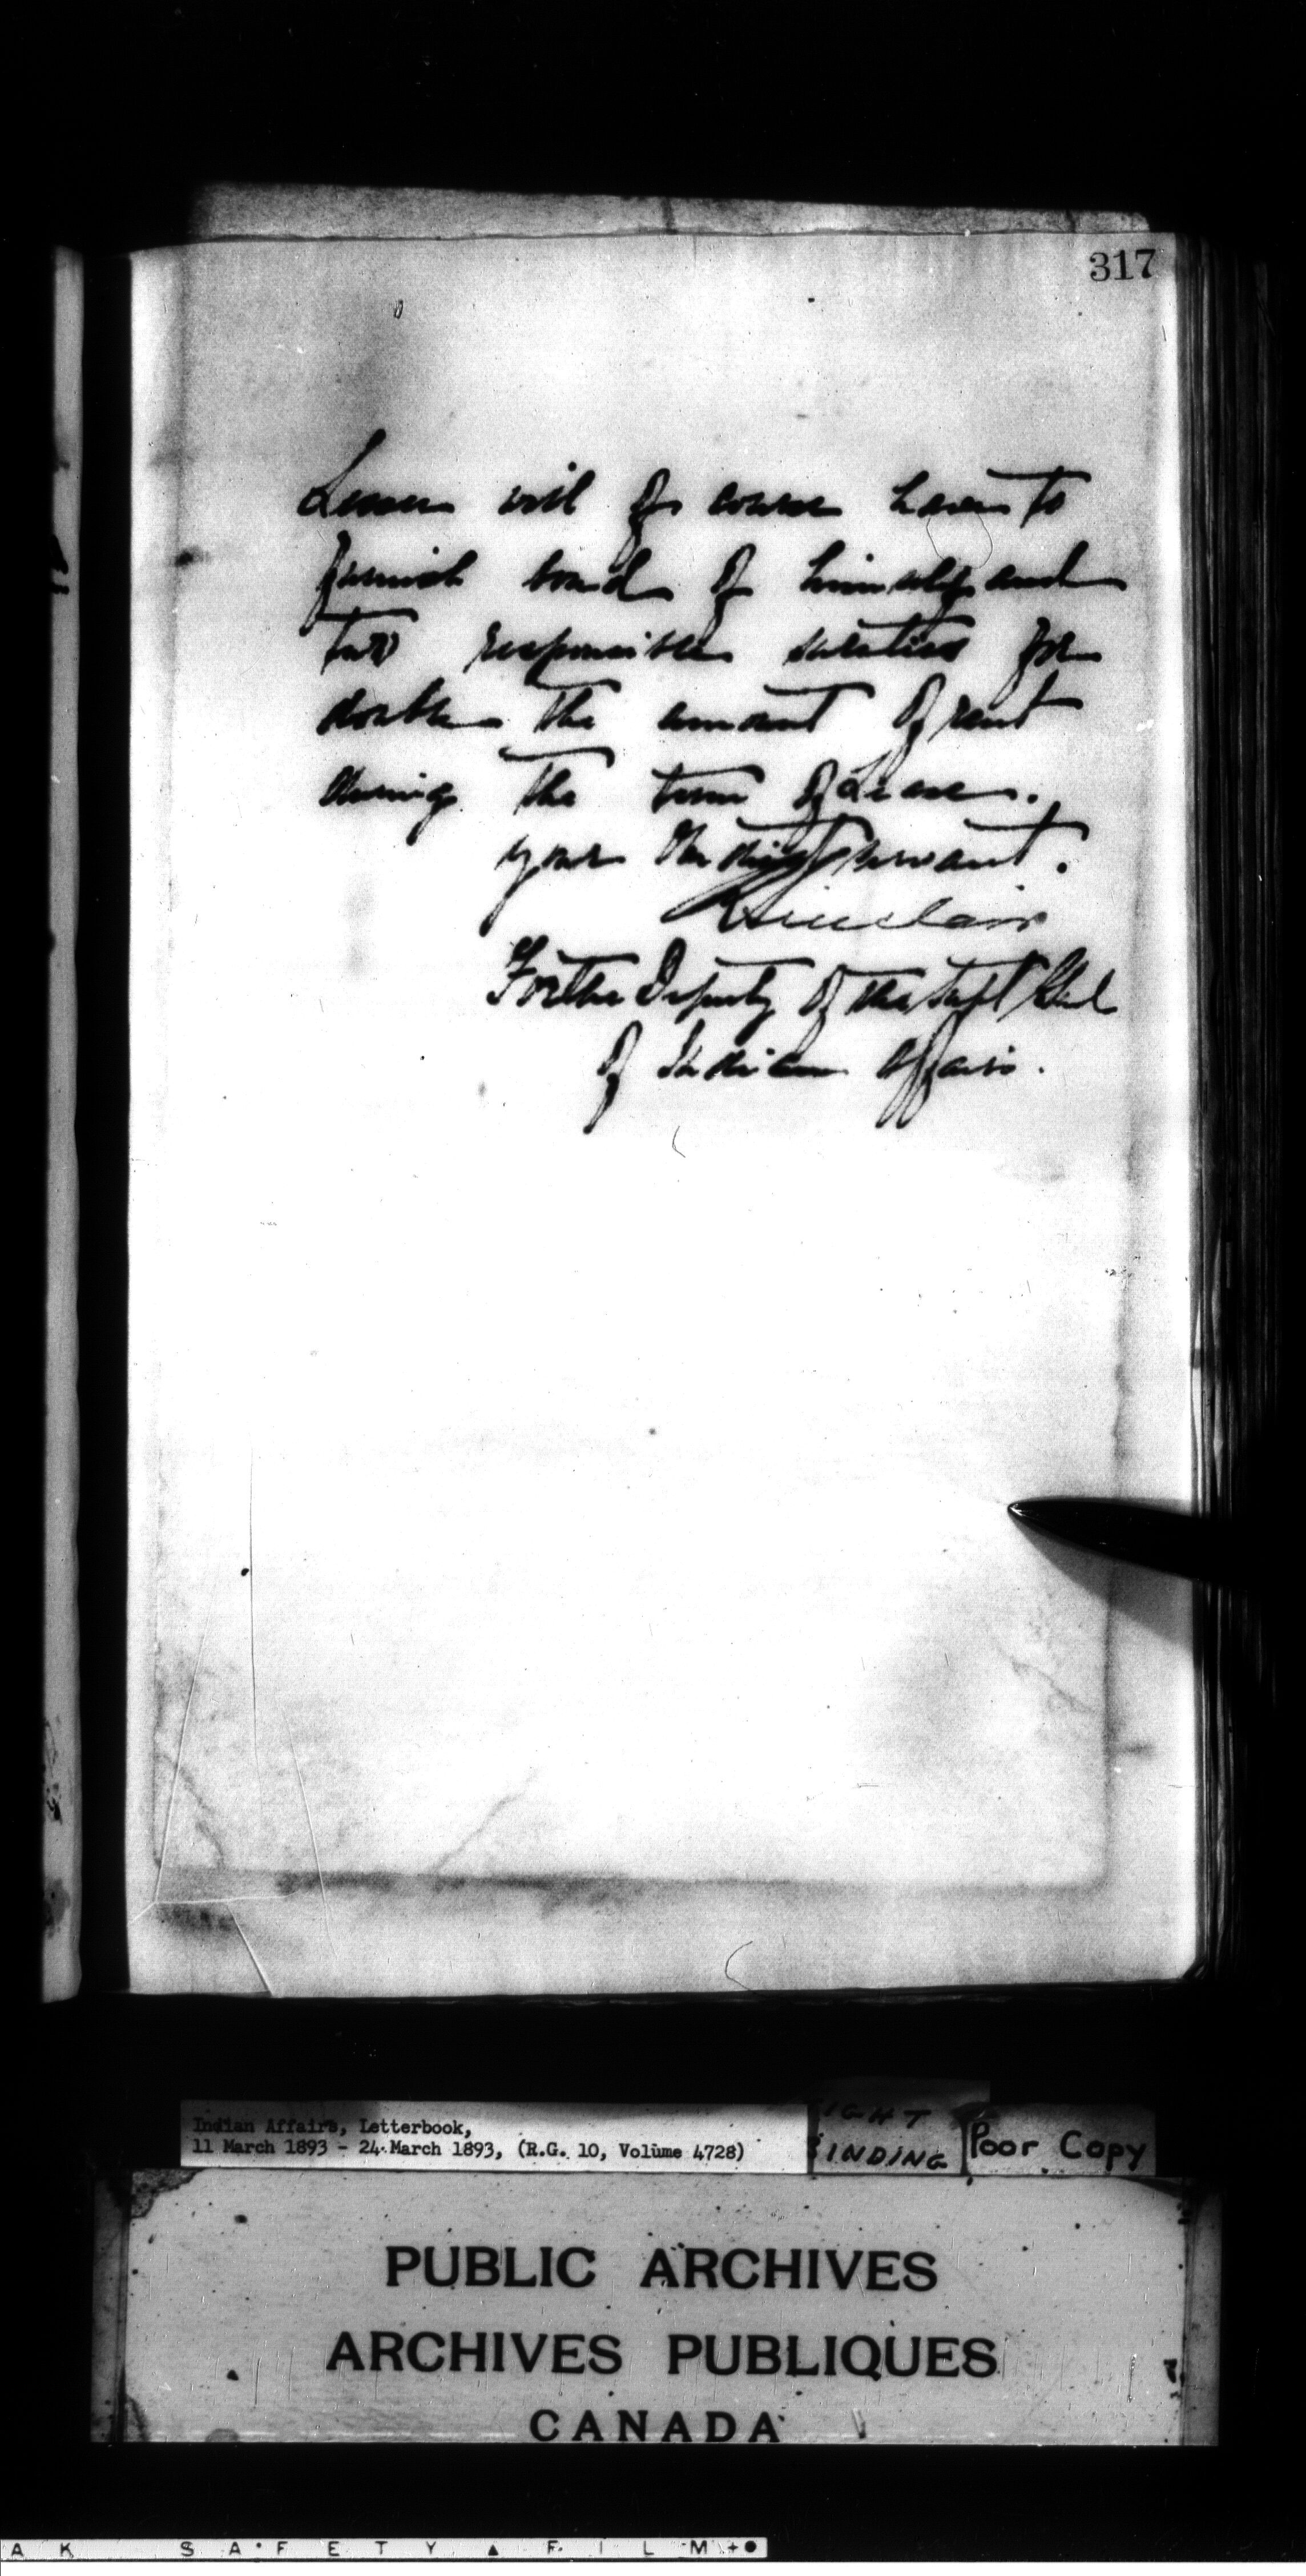 317
Lessee will of course have to
furnish bond of himself and
two responsible sureties for
double the amount of rent
during the term of Lease.
your servant.
Sinclair
For the Deputy of the Supt Genl
of Indian Affairs.
Indian Affairs, Letterbook,
11 March 1893 - 24 March 1893, (R.G. 10, Volume 4728)
IGHT
INDING
Poor Copy
PUBLIC ARCHIVES
ARCHIVES PUBLIQUES
CANADA
AK SAFETY FILM